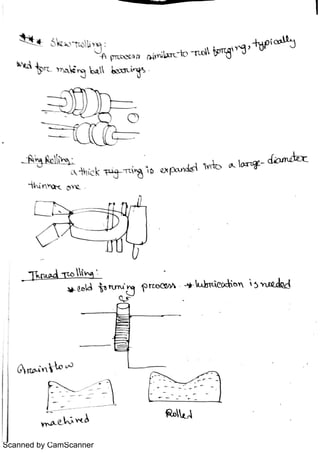 Skew rolling:
A process similar to roll forging, typically
used for making ball bearings.
Ring Rolling:
a thick ring is expanded into a large-diameter
thinner one.
Thread rolling:
cold forming process → lubrication is needed
Grain flow
machined
Rolled
Scanned by CamScanner